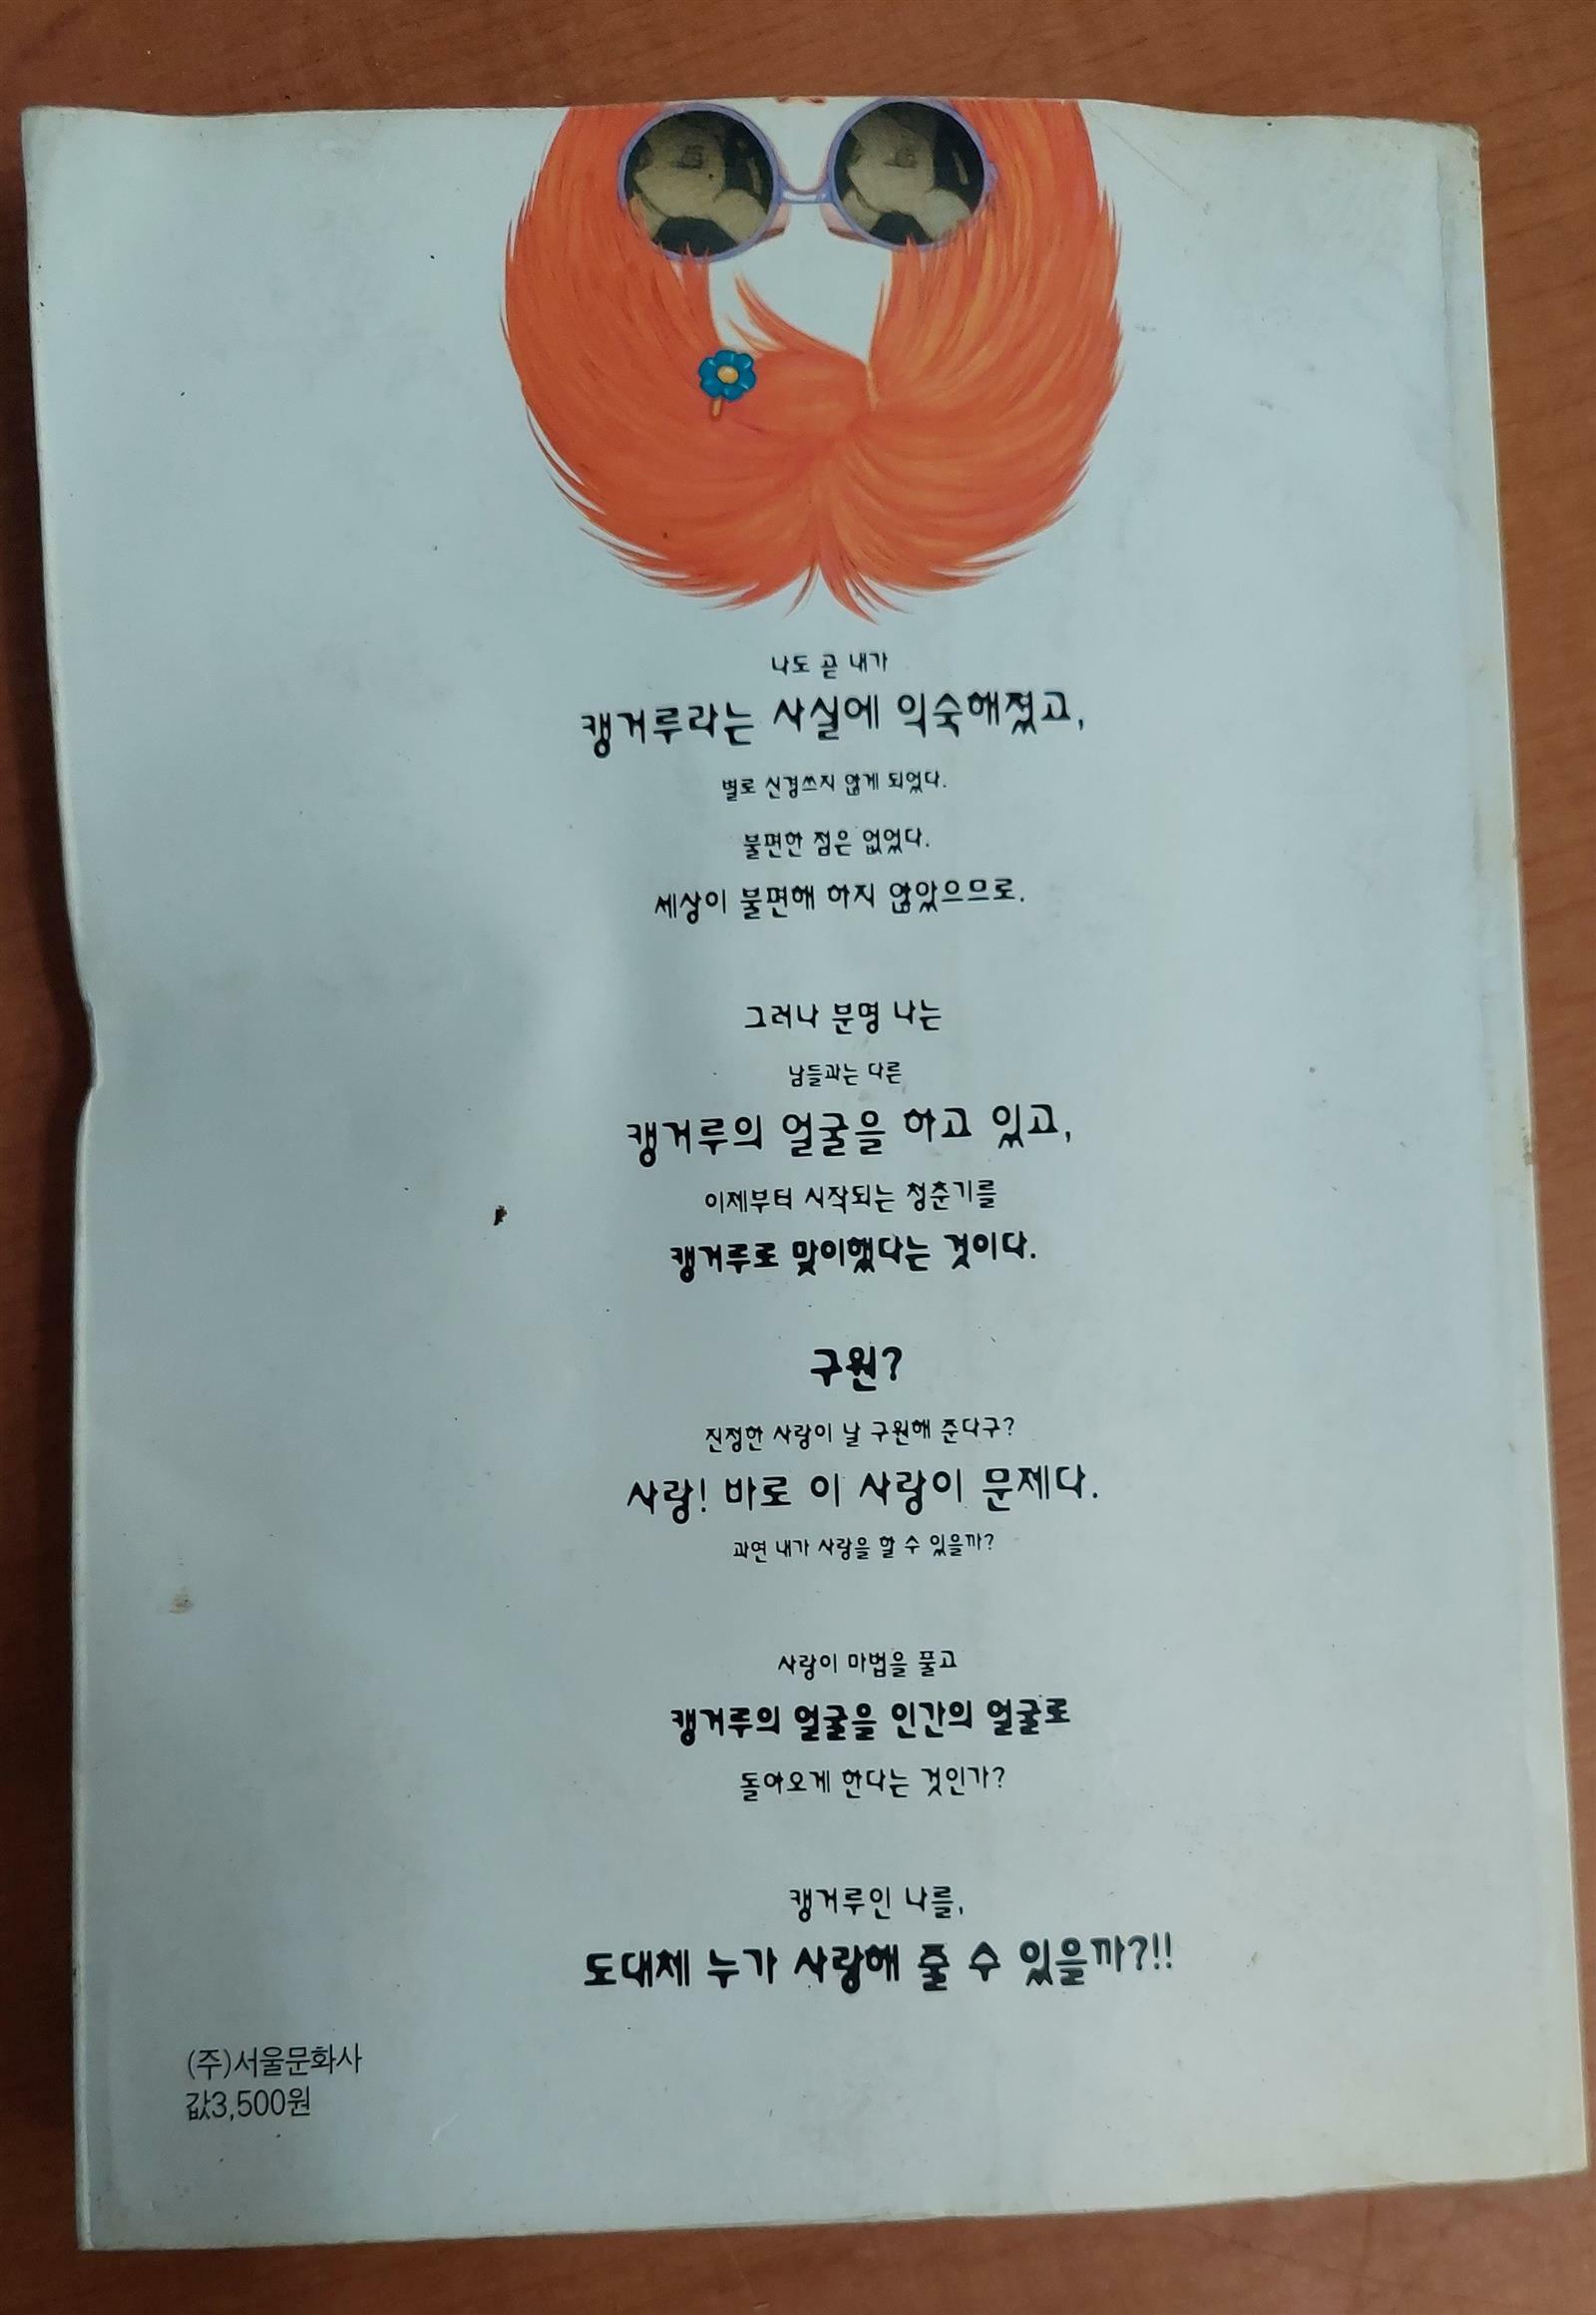 나도 곧 내가
캥거루라는 사실에 익숙해졌고,
별로 신경쓰지 않게 되었다.
불편한 점은 없었다.
세상이 불편해 하지 않았으므로.
그러나 분명 나는
남들과는 다른
캥거루의 얼굴을 하고 있고,
이제부터 시작되는 청춘기를
캥거루로 맞이했다는 것이다.
구원?
진정한 사랑이 날 구원해 준다구?
사랑! 바로 이 사랑이 문제다.
과연 내가 사랑을 할 수 있을까?
사랑이 마법을 풀고
캥거루의 얼굴을 인간의 얼굴로
돌아오게 한다는 것인가?
캥거루인 나를,
도대체 누가 사랑해 줄 수 있을까?!!
(주)서울문화사
값3,500원